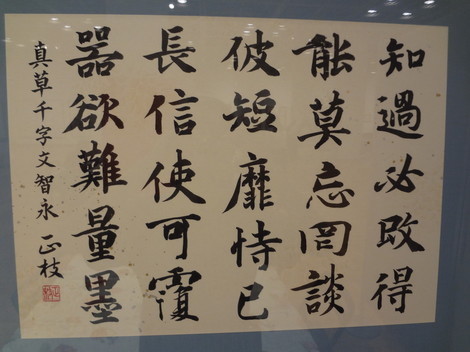 知過必改得
能莫忘罔談
彼短靡恃己
長信使可覆
器欲難量墨
真草千字文智永 正枝